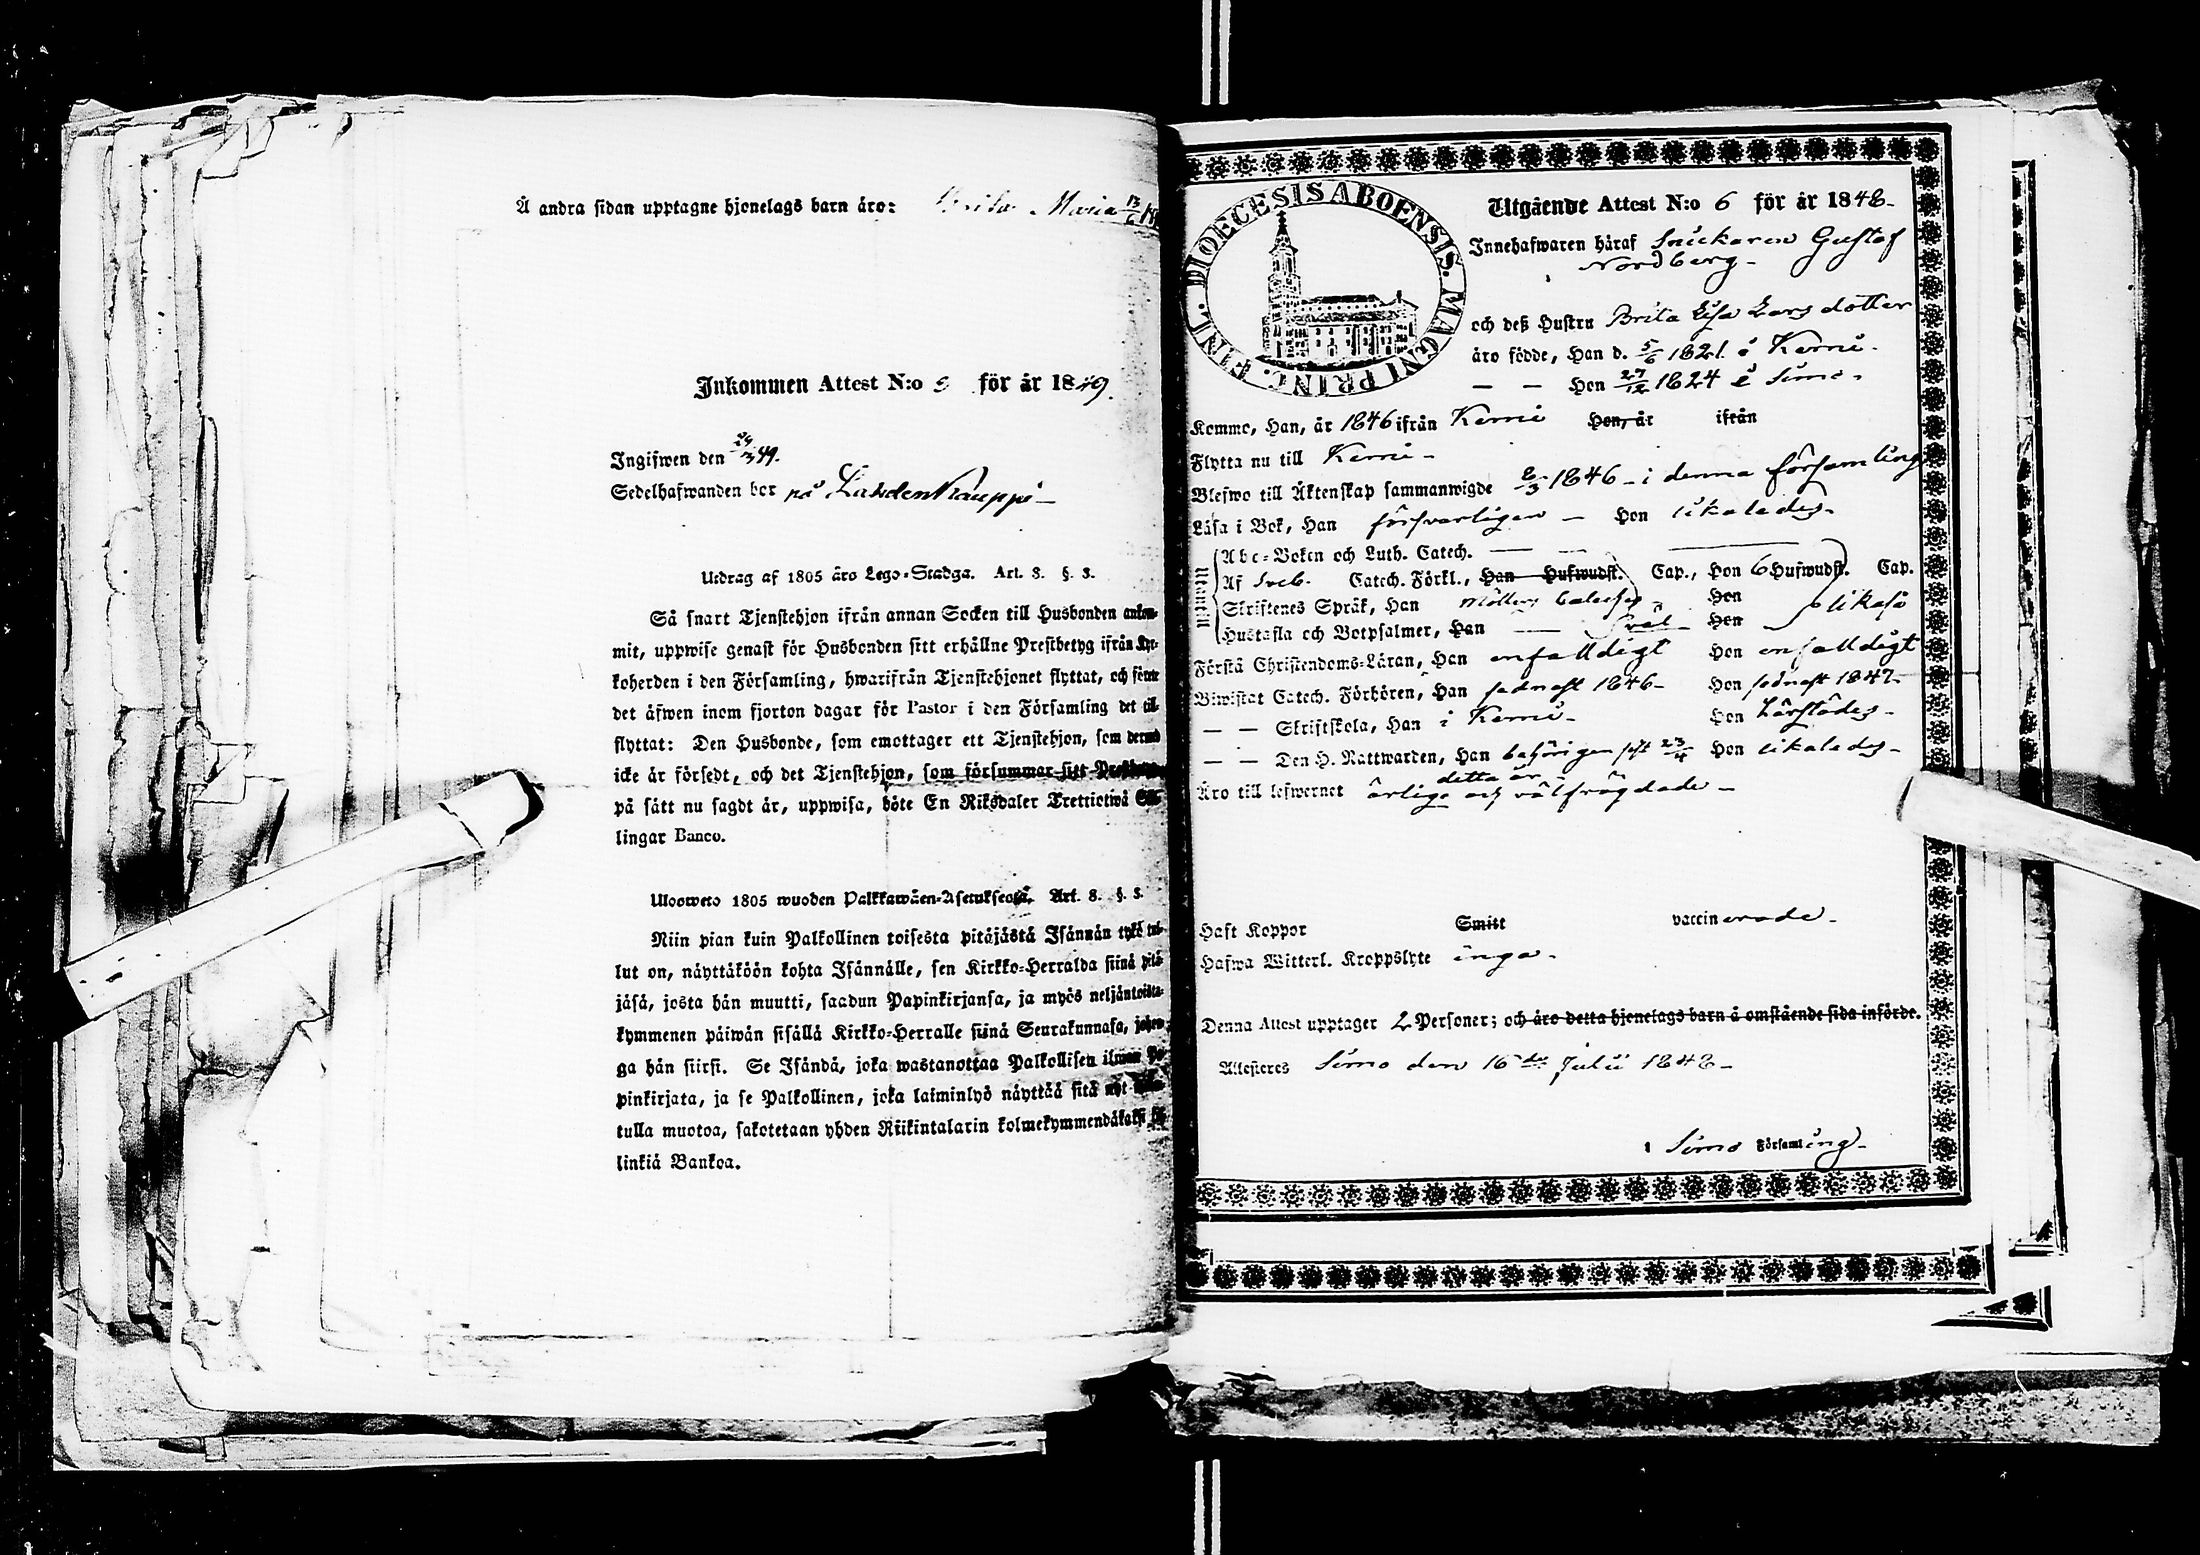 Å andra sidan upptagne hjonelags barn äro: Brita Maria 13/6
Inkommen Attest N:o för år 1849.
Ingifwen den 24/3 49.
Sedelhafwanden bor på Lahdenkauppi
Utdrag af 1805 års Lego-Stadga. Art. 8. §. 3.
Så snart Tjenstehjon ifrån annan Socken till Husbonden ankom-
mit, uppwise genast för Husbonden sitt erhållne Prestbetyg ifrån Kyr-
koherden i den Församling, hwarifrån Tjenstehjonet flyttat, och
det äfwen inom fjorton dagar för Pastor i den Församling det till
flyttat: Den Husbonde, som emottager ett Tjenstehjon, som dermed
icke är försedt, och det Tjenstehjon, som försummar sitt
på sätt nu sagdt är, uppwisa, böte En Riksdaler Trettiotwå Skil-
lingar Banco.
Ulosweto 1805 wuoden Palkkawäen-Asetuksesta. Art. 8. §. 3.
Niin pian kuin Palkollinen toisesta pitäjästä Isännän tykö tul-
lut on, näyttäköön kohta Isännälle, sen Kirkko-Herralda siinä pitä-
jäsä, josta hän muutti, saadun Papinkirjansa, ja myös neljäntoista-
kymmenen päiwän sisällä Kirkko-Herralle siinä Seurakunnasa, johon-
ga hän siirsi. Se Isändä, joka wastanottaa Palkollisen ilman Pa-
pinkirjata, ja se Palkollinen, joka laiminlyö näyttää sitä nyt
tulla muotoa, sakotetaan yhden Riikintalarin kolmekymmendäkaksi Kil-
linkiä Bankoa.
DIOECESIS ABOENSIS. MAGNI PRINC. FINL.
Utgående Attest N:o 6 för år 1848-
Innehafwaren häraf Snickaren Gustaf
Nordberg-
och deß Hustru Brita Lisa Larsdotter
äro födde, Han d. 5/6 1821 i Kemi-
— — Hon 27/12 1824 i Simo-
Kommo, Han, år 1846 ifrån Kemi Hon, år ifrån
Flytta nu till Kemi-
Blefwo till Äktenskap sammanwigde 8/3 1846 - i denna församling
Läsa i Bok, Han försvarligen - Hon likaledes-
Utantill
Abc-Boken och Luth. Catech. — —
Af Sveb. Catech. Förkl., Han Hufwudst. Cap., Hon 6 Hufwudst. Cap.
Skriftenes Språk, Han Möllers Hon likaså
Hustafla och Botpsalmer, Han — Hon
Förstå Christendoms-Läran, Han enfalldigt Hon enfalldigt
Biwistat Catech. Förhören, Han sednast 1846- Hon sednast 1847-
— — Skriftskola, Han i Kemi- Hon härstädes-
— — Den H. Nattwarden, Han behörigen sist 23/4 Hon likaledes-
detta år
Äro till lefwernet ärlige och välfrägdade-
Haft Koppor Smitt vaccinerade-
Hafwa Witterl. Kroppslyte inga-
Denna Attest upptager 2 Personer; och äro detta hjonelags barn å omstående sida införde.
Attesteres Simo den 16de Julii 1848-
i Simo Församling-